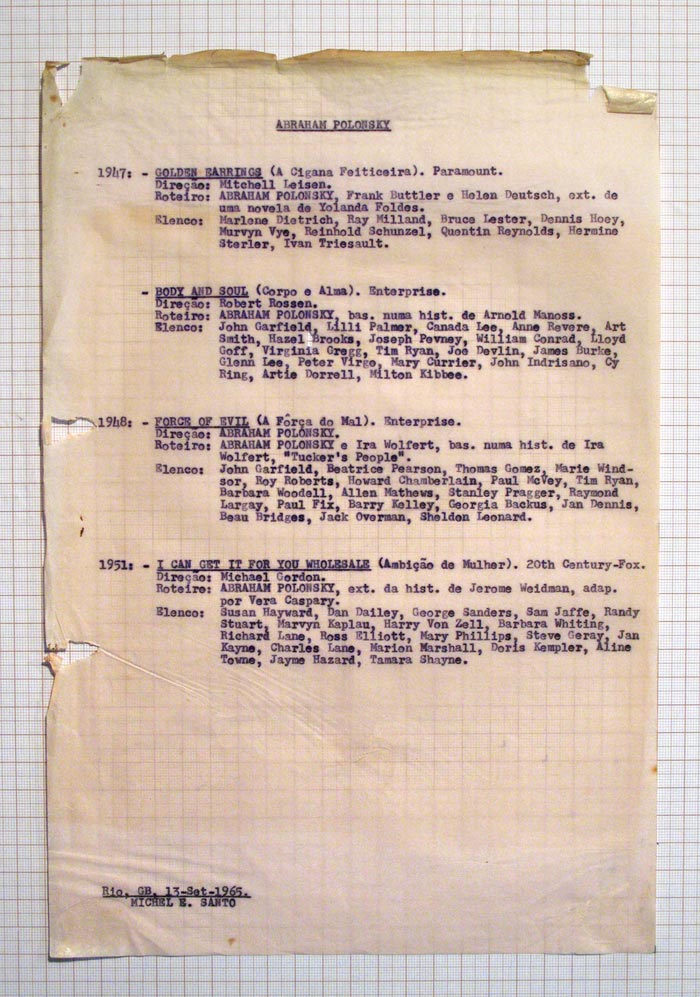 ABRAHAM POLONSKY
1947: - GOLDEN EARRINGS (A Cigana Feiticeira). Paramount.
Direção: Mitchell Leisen.
Roteiro: ABRAHAM POLONSKY, Frank Buttler e Helen Deutsch, ext. de
uma novela de Yolanda Foldes.
Elenco: Marlene Dietrich, Ray Milland, Bruce Lester, Dennis Hoey,
Murvyn Vye, Reinhold Schunzel, Quentin Reynolds, Hermine
Sterler, Ivan Triesault.
- BODY AND SOUL (Corpo e Alma). Enterprise.
Direção: Robert Rossen.
Roteiro: ABRAHAM POLONSKY, bas. numa hist. de Arnold Manoss.
Elenco: John Garfield, Lilli Palmer, Canada Lee, Anne Revere, Art
Smith, Hazel Brooks, Joseph Pevney, William Conrad, Lloyd
Goff, Virginia Gregg, Tim Ryan, Joe Devlin, James Burke,
Glenn Lee, Peter Virgo, Mary Currier, John Indrisano, Cy
Ring, Artie Dorrell, Milton Kibbee.
1948: - FORCE OF EVIL (A Fôrça do Mal). Enterprise.
Direção: ABRAHAM POLONSKY.
Roteiro: ABRAHAM POLONSKY e Ira Wolfert, bas. numa hist. de Ira
Wolfert, "Tucker's People".
Elenco: John Garfield, Beatrice Pearson, Thomas Gomez, Marie Wind-
sor, Roy Roberts, Howard Chamberlain, Paul McVey, Tim Ryan,
Barbara Woodell, Allen Mathews, Stanley Pragger, Raymond
Largay, Paul Fix, Barry Kelley, Georgia Backus, Jan Dennis,
Beau Bridges, Jack Overman, Sheldon Leonard.
1951: - I CAN GET IT FOR YOU WHOLESALE (Ambição de Mulher). 20th Century-Fox.
Direção: Michael Gordon.
Roteiro: ABRAHAM POLONSKY, ext. da hist. de Jerome Weidman, adap.
por Vera Caspary.
Elenco: Susan Hayward, Dan Dailey, George Sanders, Sam Jaffe, Randy
Stuart, Marvyn Kaplau, Harry Von Zell, Barbara Whiting,
Richard Lane, Ross Elliott, Mary Phillips, Steve Geray, Jan
Kayne, Charles Lane, Marion Marshall, Doris Kempler, Aline
Towne, Jayme Hazard, Tamara Shayne.
Rio, GB, 13-Set-1965.
MICHEL E. SANTO